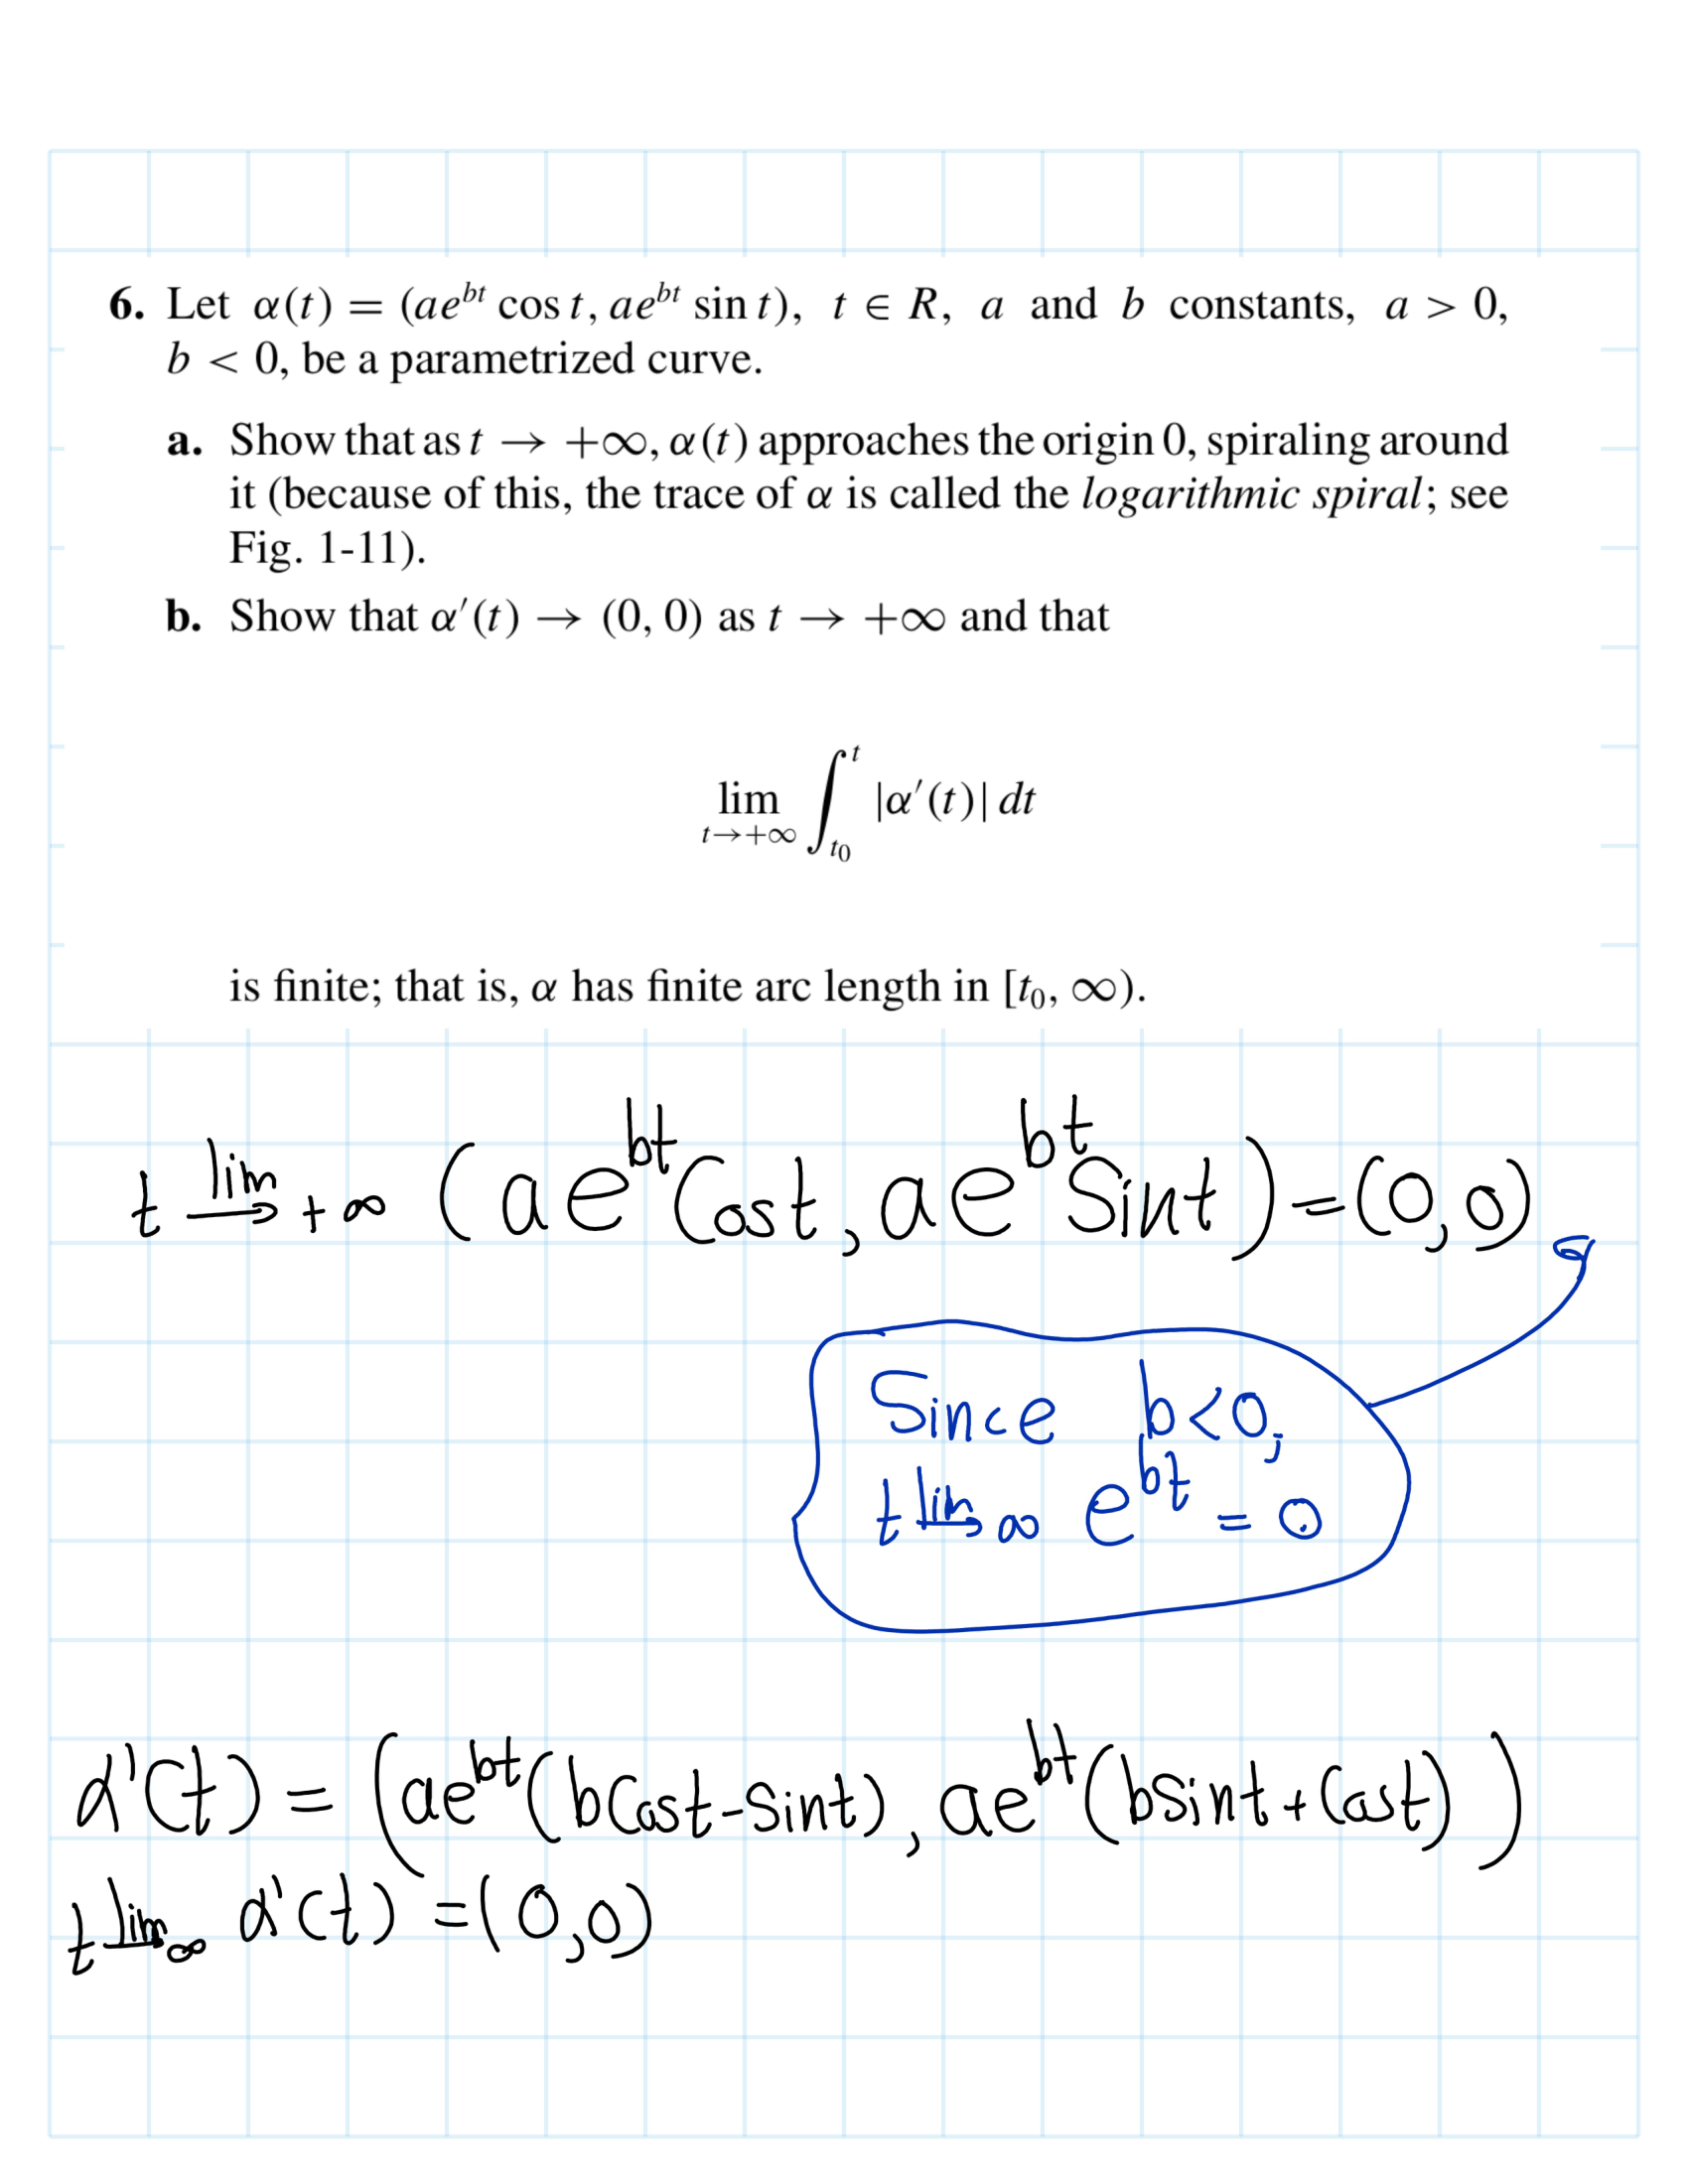 6. Let α(t) = (ae^{bt} cos t, ae^{bt} sin t), t ∈ R, a and b constants, a > 0,
b < 0, be a parametrized curve.
a. Show that as t → +∞, α(t) approaches the origin 0, spiraling around
it (because of this, the trace of α is called the logarithmic spiral; see
Fig. 1-11).
b. Show that α′(t) → (0, 0) as t → +∞ and that
lim_{t→+∞} ∫_{t₀}^{t} |α′(t)| dt
is finite; that is, α has finite arc length in [t₀, ∞).
lim_{t→+∞} (ae^{bt} Cost, ae^{bt} Sint) = (0,0)
Since b<0,
lim_{t→∞} e^{bt} = 0
α'(t) = (ae^{bt}(bCost-Sint), ae^{bt}(bSint+Cost))
lim_{t→∞} α'(t) = (0,0)